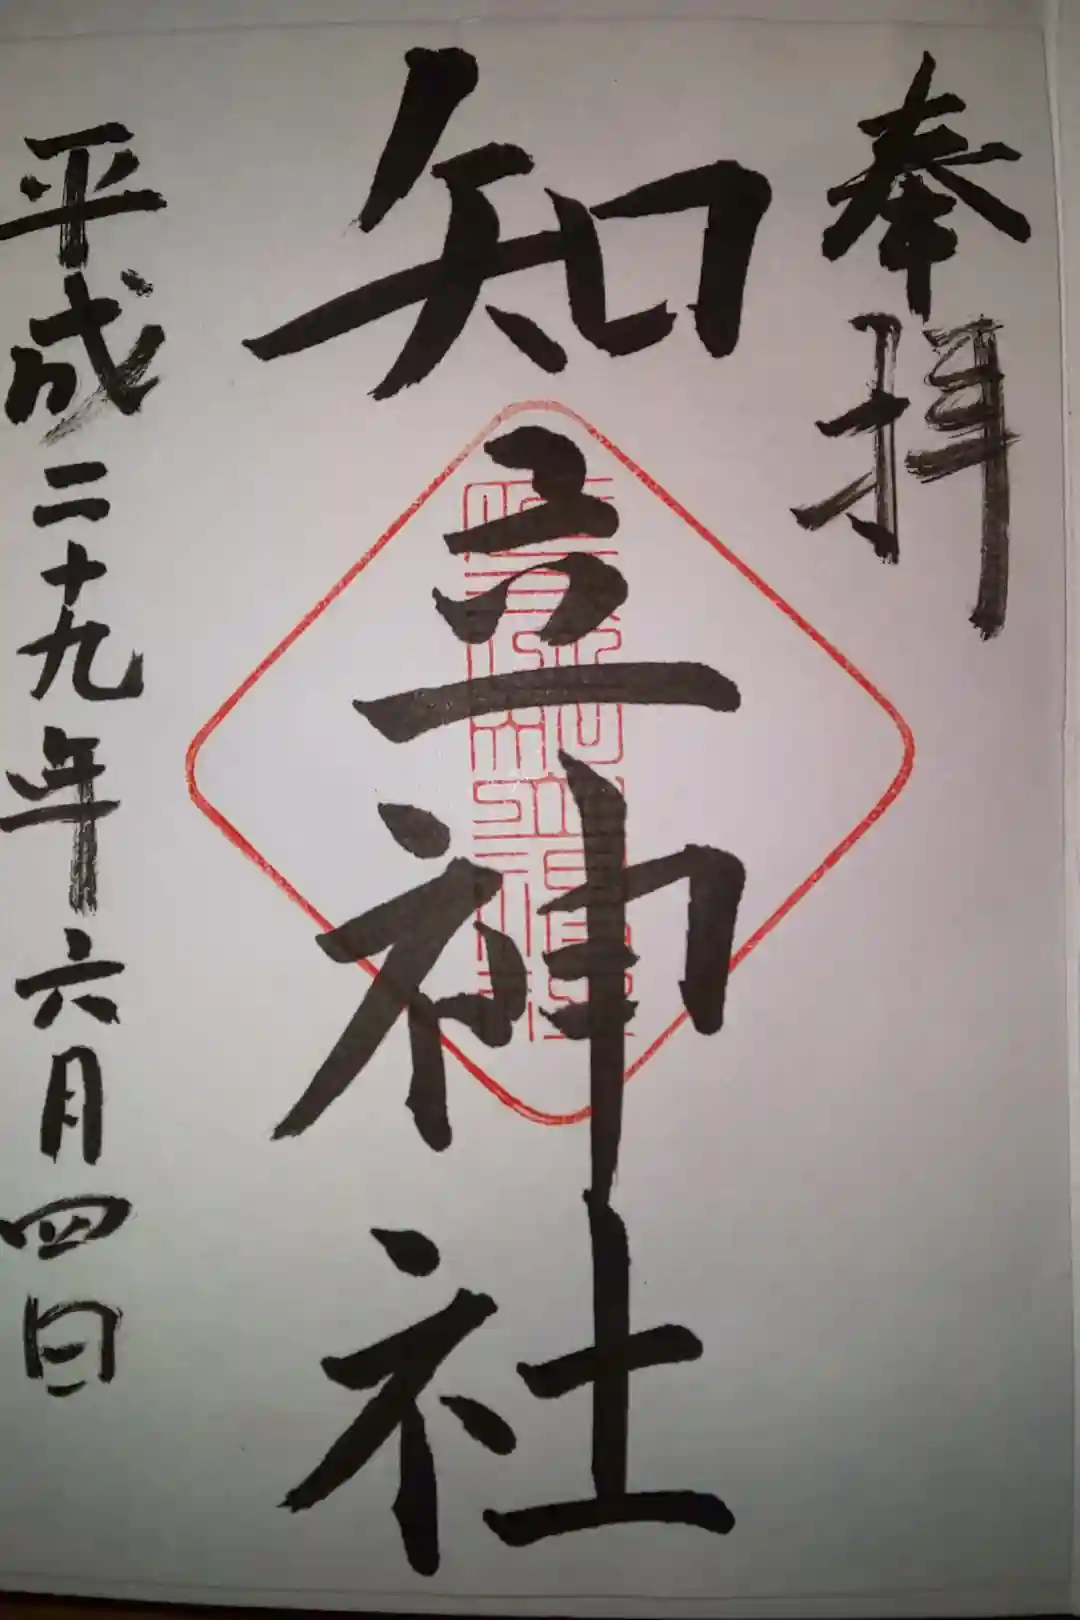 奉拝
知立神社
平成二十九年六月四日